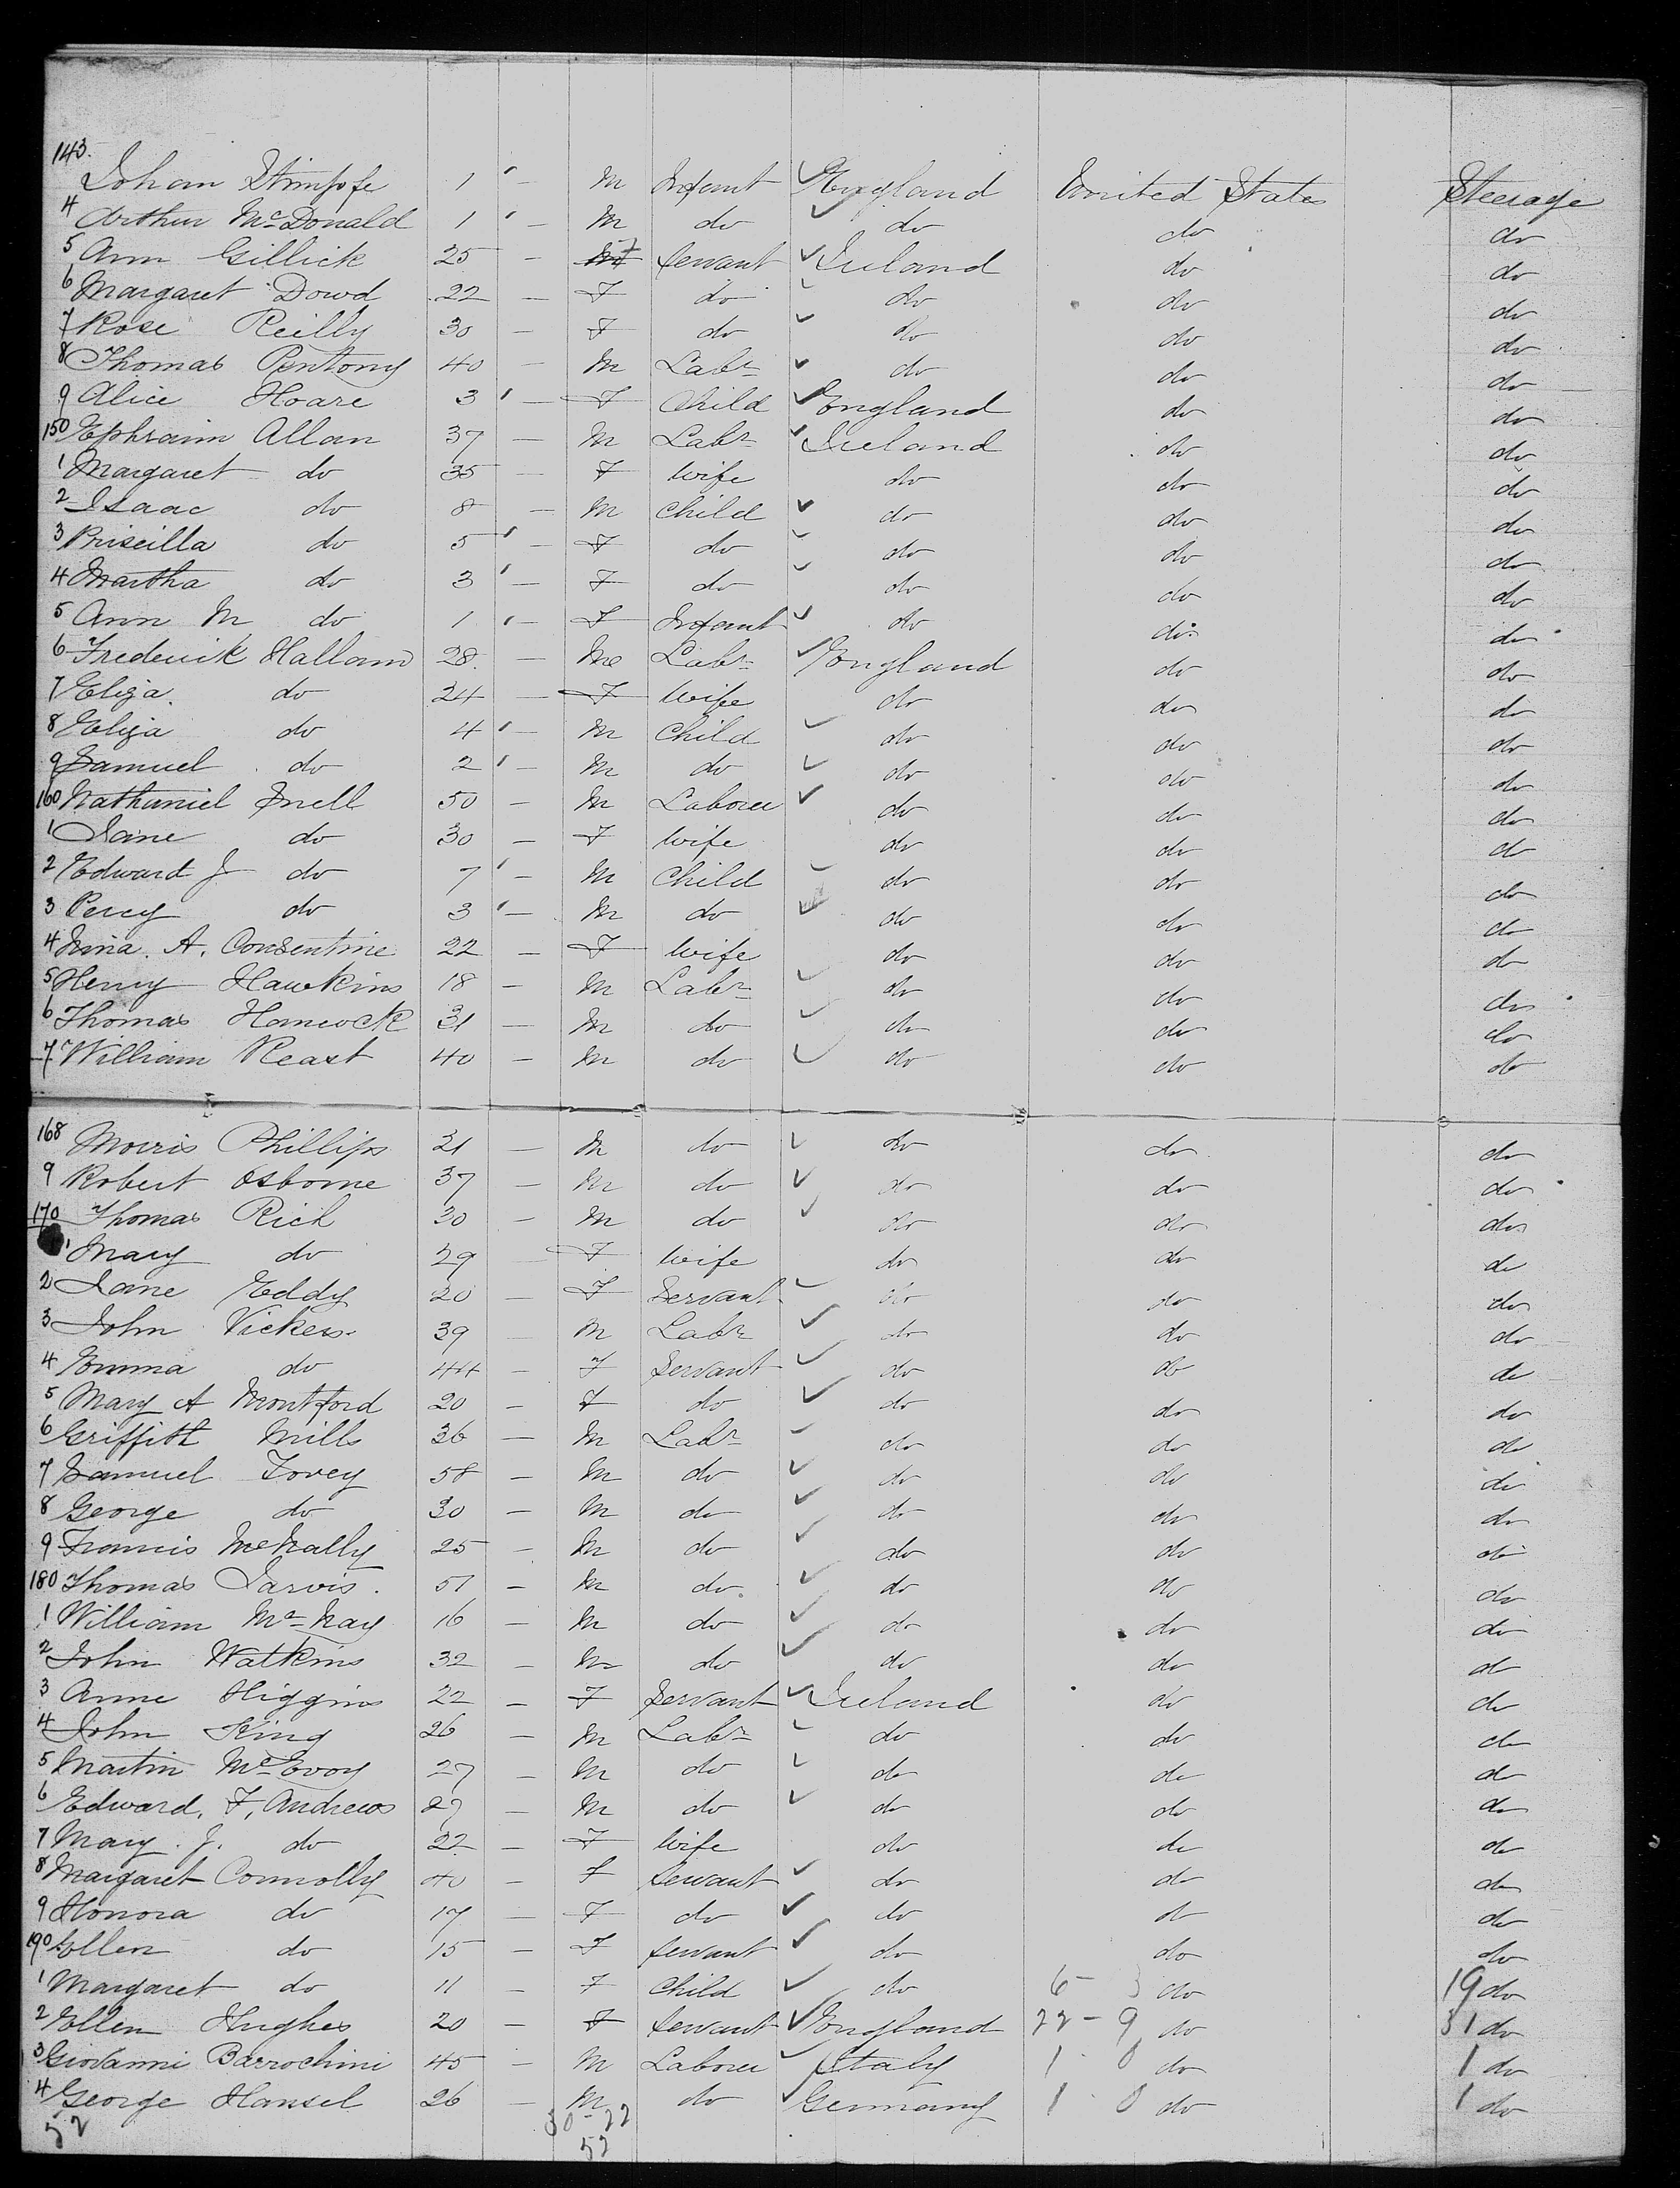 143. Johan Stimpfe 1 ' - M Infant ✓ England United States Steerage
4 Arthur McDonald 1 ' - M do ✓ do do do
5 Ann Gillick 25 - F Servant ✓ Ireland do do
6 Margaret Dowd 22 - F do ✓ do do do
7 Rose Reilly 30 - F do ✓ do do do
8 Thomas Pentony 40 - M Labr ✓ do do do
9 Alice Hoare 3 ' - F Child ✓ England do do
150 Ephraim Allan 37 - M Labr ✓ Ireland do do
1 Margaret do 35 - F Wife do do do
2 Isaac do 8 - M Child ✓ do do do
3 Priscilla do 5 ' - F do ✓ do do do
4 Martha do 3 ' - F do ✓ do do do
5 Ann M do 1 ' - F Infant ✓ do do do
6 Frederick Hallam 28 - M Labr ✓ England do do
7 Eliza do 24 - F Wife do do do
8 Eliza do 4 ' - M Child ✓ do do do
9 Samuel do 2 ' - M do ✓ do do do
160 Nathaniel Snell 50 - M Laborer ✓ do do do
1 Jane do 30 - F Wife do do do
2 Edward J do 7 ' - M Child ✓ do do do
3 Percy do 3 ' - M do ✓ do do do
4 Nina. A. Consentine 22 - F Wife do do do
5 Henry Hawkins 18 - M Labr ✓ do do do
6 Thomas Hancock 31 - M do ✓ do do do
7 William Reast 40 - M do ✓ do do do
168 Morris Phillips 21 - M do ✓ do do do
9 Robert Osborne 37 - M do ✓ do do do
170 Thomas Rich 30 - M do ✓ do do do
1 Mary do 29 F Wife do do do
2 Jane Eddy 20 - F Servant ✓ do do do
3 John Vickers 39 - M Labr ✓ do do do
4 Emma do 44 - F Servant ✓ do do do
5 Mary A Montford 20 - F do ✓ do do do
6 Griffith Mills 36 - M Labr ✓ do do do
7 Samuel Tovey 58 - M do ✓ do do do
8 George do 30 - M do ✓ do do do
9 Francis McNally 25 - M do ✓ do do do
180 Thomas Jarvis. 51 - M do. ✓ do do do
1 William McNay 16 - M do ✓ do do do
2 John Watkins 32 - M do ✓ do do do
3 Anne Higgins 22 - F Servant ✓ Ireland do do
4 John King 26 - M Labr ✓ do do do
5 Martin McEvoy 27 - M do ✓ do do do
6 Edward. F. Andrews 27 - M do ✓ do do do
7 Mary. J. do 22 - F Wife do do do
8 Margaret Connolly 40 - F Servant ✓ do do do
9 Honora do 17 - F do ✓ do do do
190 Ellen do 15 - F Servant ✓ do do do
1 Margaret do 11 - F Child ✓ do 6 - 3 do 19 do
2 Ellen Hughes 20 - F Servant ✓ England 22 - 9 do 31 do
3 Giovanni Barrochini 45 - M Laborer ✓ Italy 1 0 do 1 do
4 George Hansel 26 - M do ✓ Germany 1 0 do 1 do
52 30-22
52